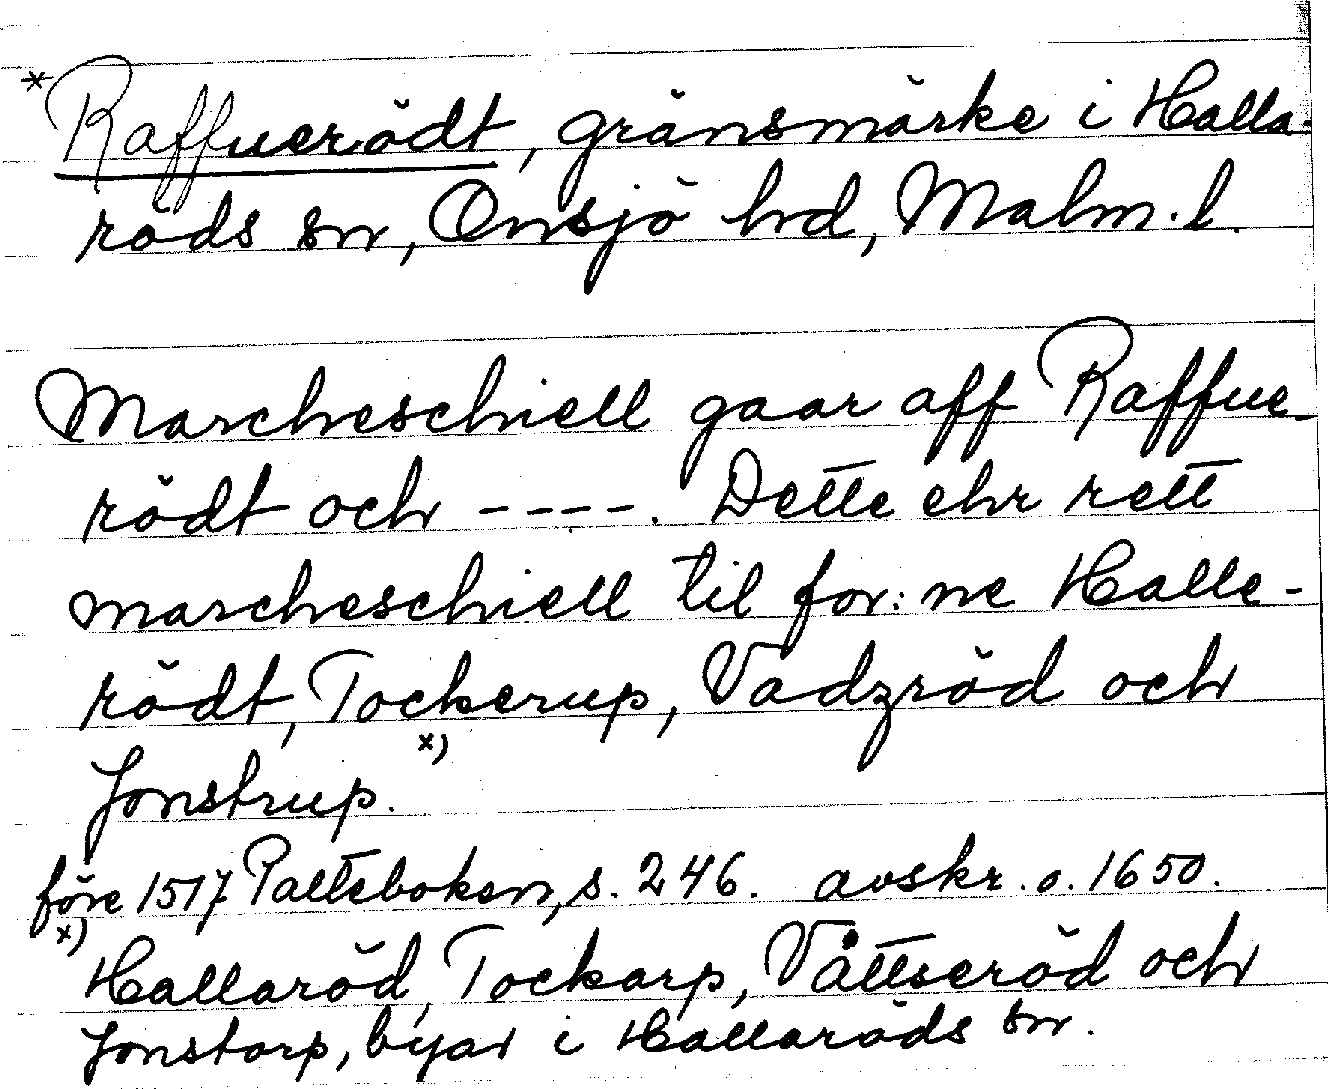 * Raffuerödt, gränsmärke i Halla-
röds sn, Onsjö hd, Malm. l.
Marcheschiell gaar aff Raffue-
rödt och ----. Dette ehr rett
marcheschiell til for:ne Halle-
rödt, Tockerup, Vadzröd och
Jonstrup. x)
före 1517 Palteboken, s. 246. avskr. o. 1650.
x) Hallaröd, Tockarp, Våttseröd och
Jonstorp, byar i Hallaröds sn.